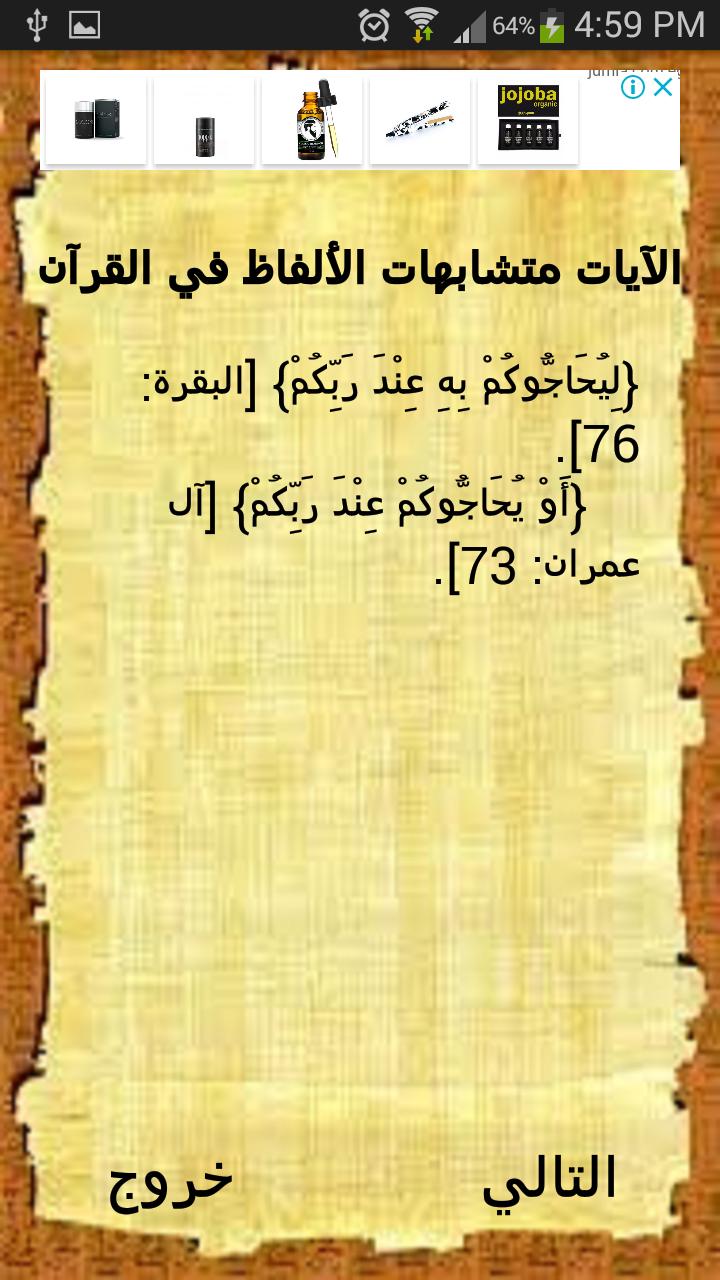 64% 4:59 PM
jojoba
organic
الآيات متشابهات الألفاظ في القرآن
{لِيُحَاجُّوكُمْ بِهِ عِنْدَ رَبِّكُمْ} [البقرة:
76].
{أَوْ يُحَاجُّوكُمْ عِنْدَ رَبِّكُمْ} [آل
عمران: 73].
التالي
خروج